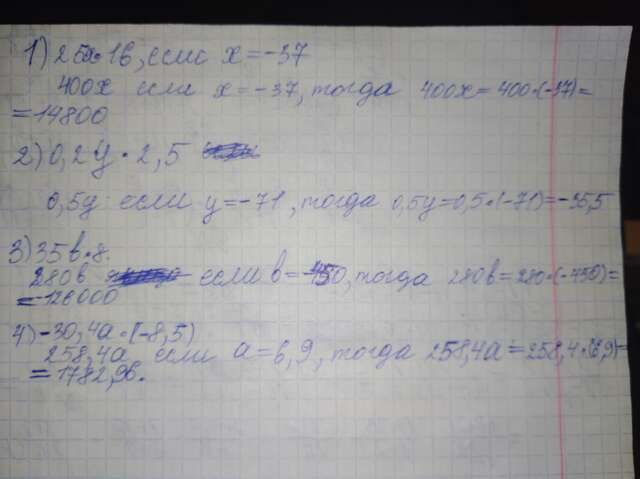 1) 25x•16, если x=-37
400x если x=-37, тогда 400x=400•(-37)=
=-14800
2) 0,2y•2,5
0,5y если y=-71, тогда 0,5y=0,5•(-71)=-35,5
3) 35в•8.
280в если в=-450, тогда 280в=280•(-450)=
=-126000
4) -30,4a•(-8,5)
258,4a если a=6,9, тогда 258,4a=258,4•(6,9)=
=1782,96.